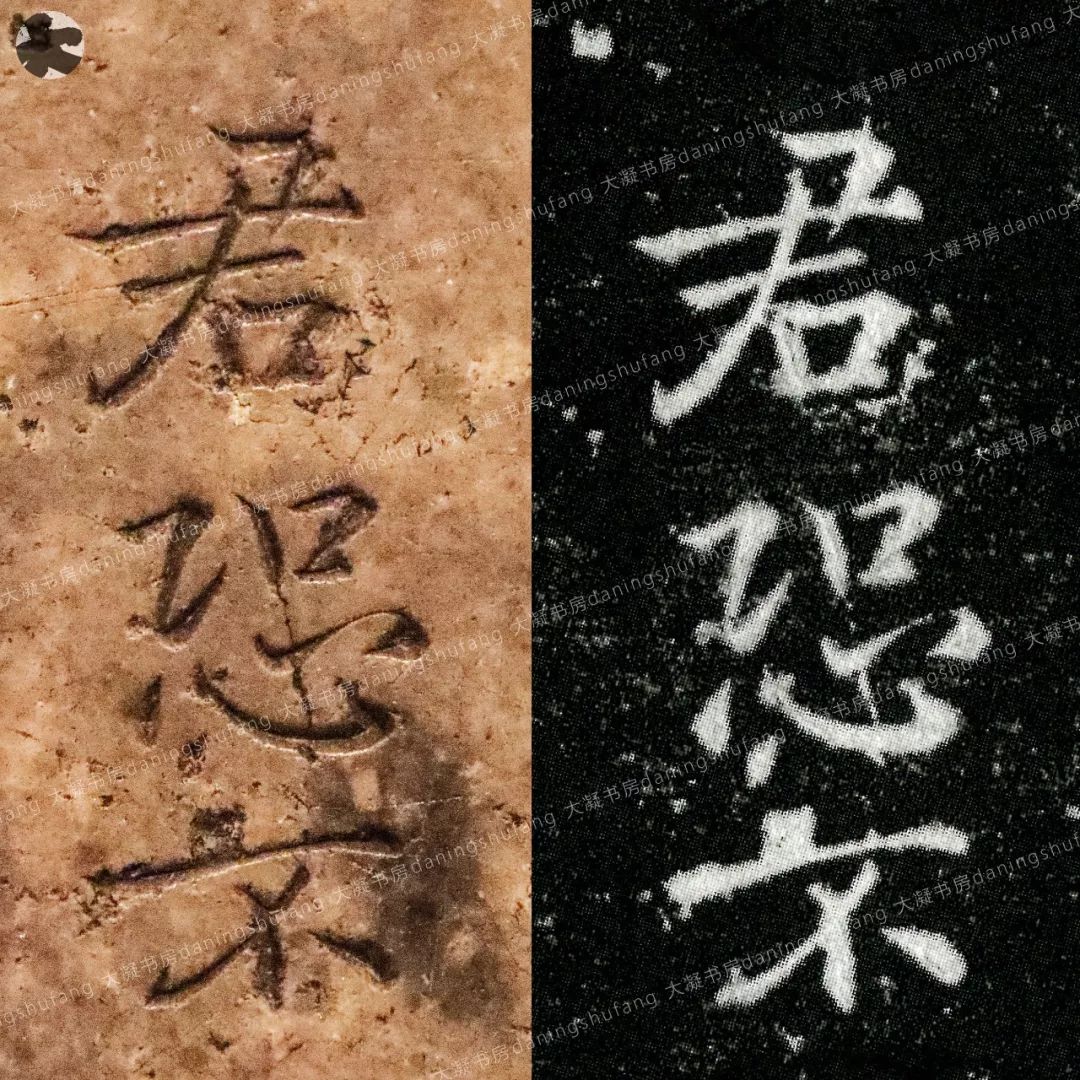 君
恐
不
君
恐
不
大凝书房daningshufang